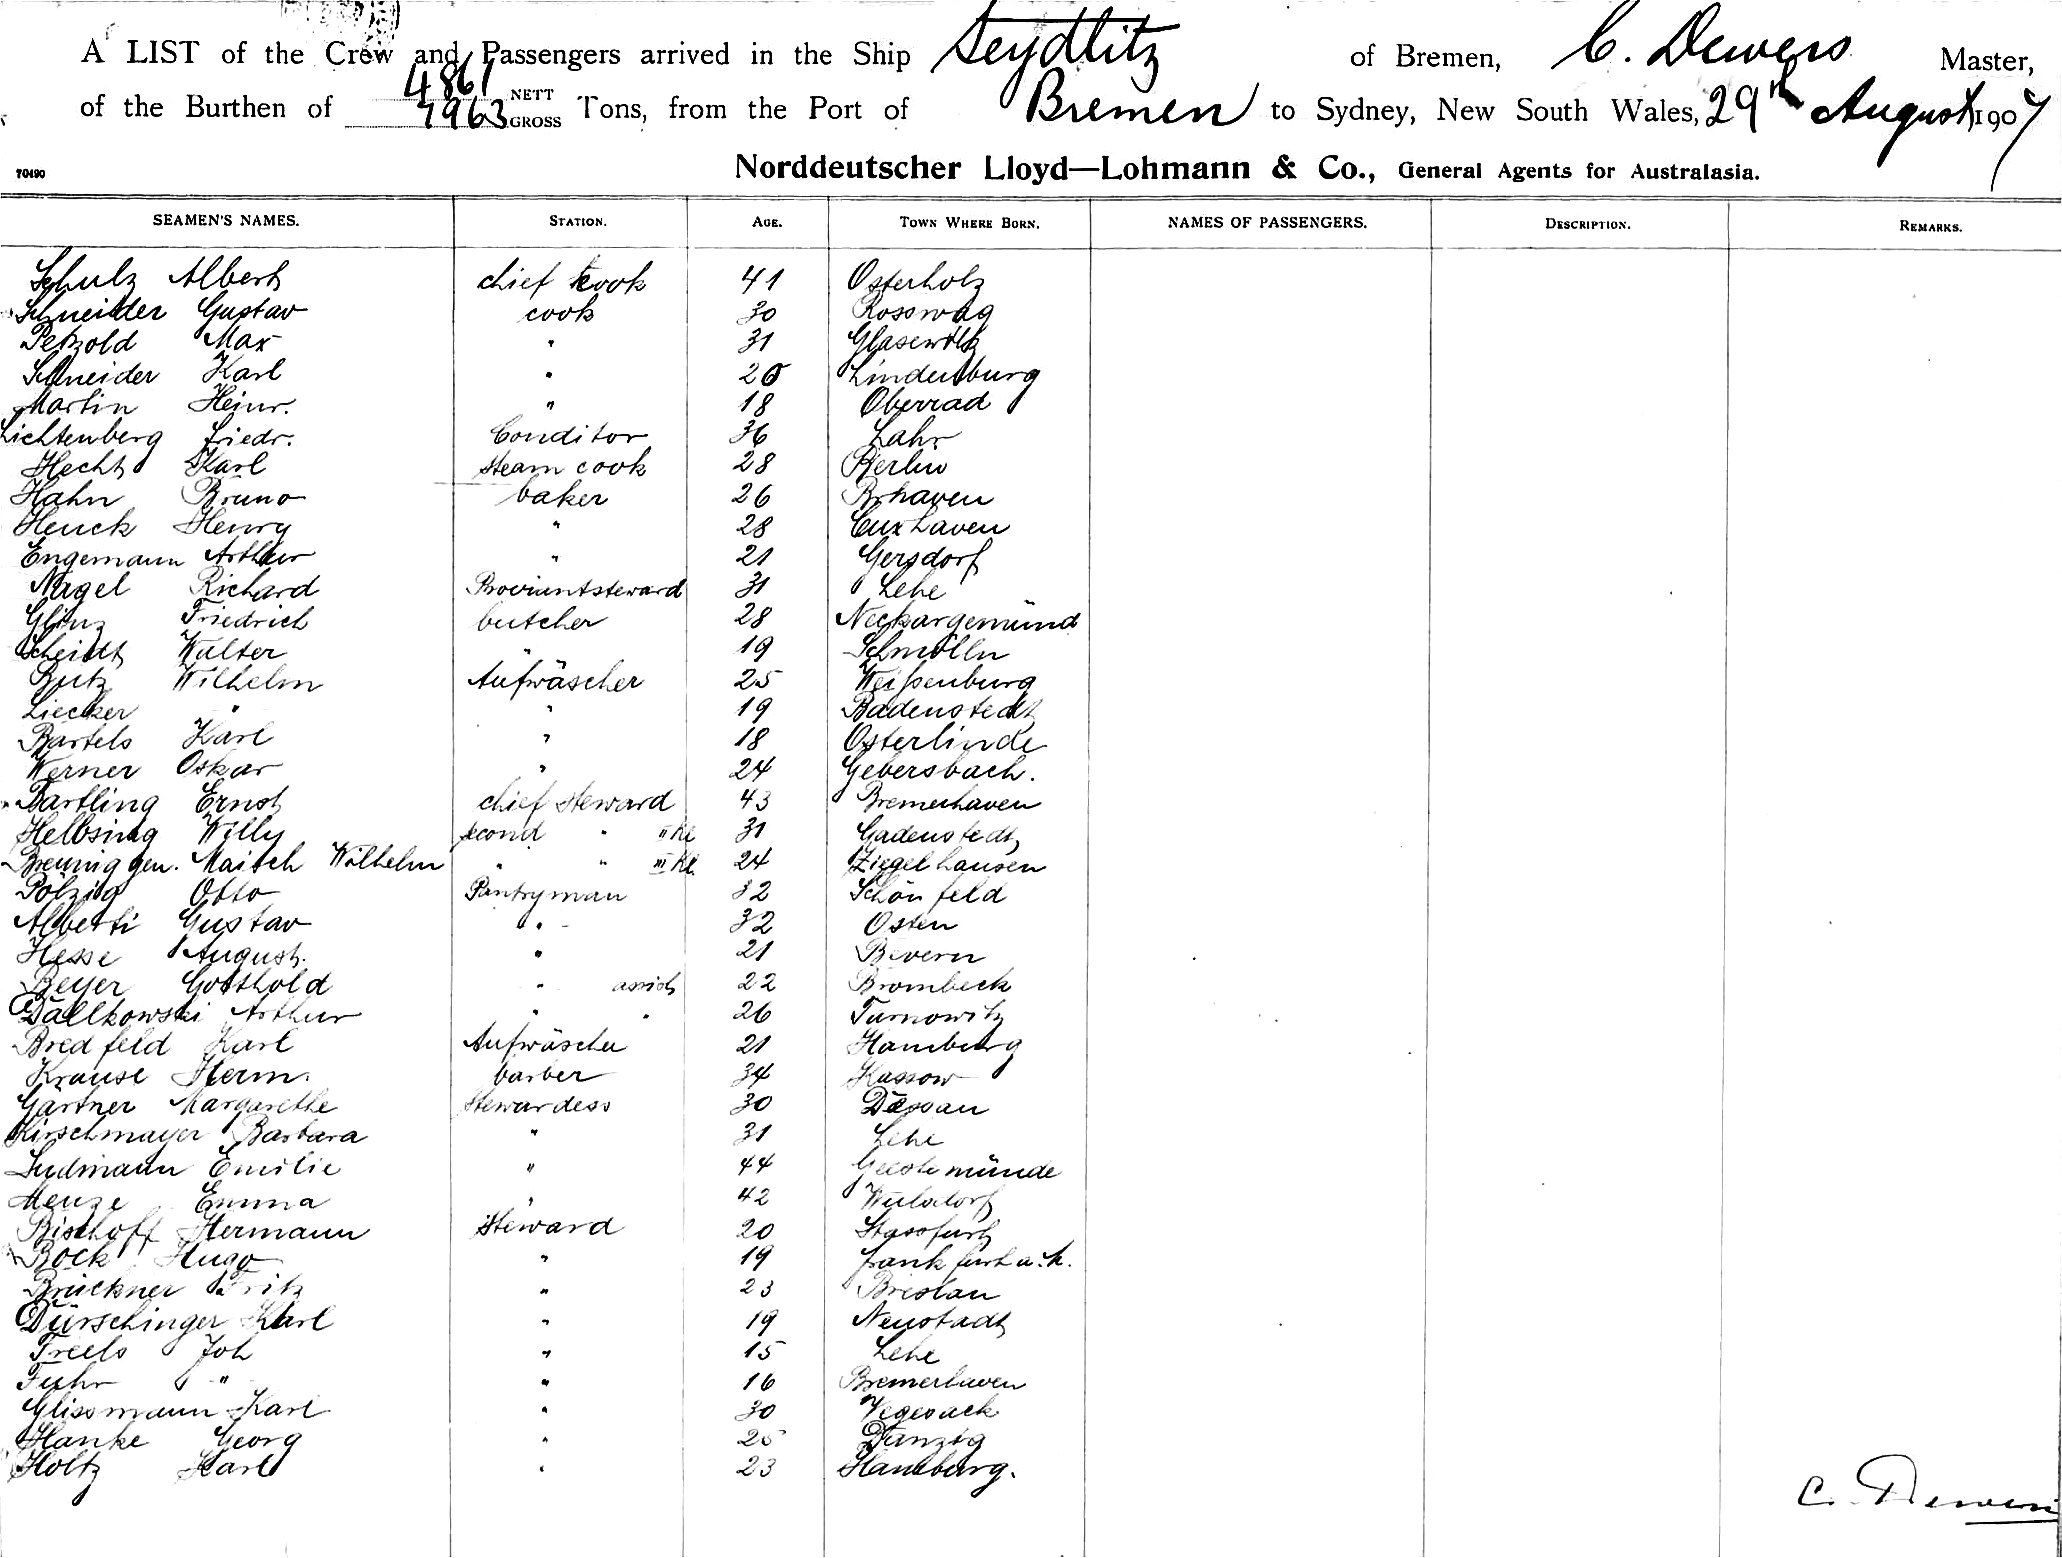 A LIST of the Crew and Passengers arrived in the Ship Seydlitz of Bremen, C. Dewers Master,
of the Burthen of 4861 NETT 7963 GROSS Tons, from the Port of Bremen to Sydney, New South Wales, 29th August 1907
70490 Norddeutscher Lloyd—Lohmann & Co., General Agents for Australasia.
SEAMEN'S NAMES. STATION. AGE. TOWN WHERE BORN. NAMES OF PASSENGERS. DESCRIPTION. REMARKS.
Schulz Albert chief cook 41 Osterholz
Schneider Gustav cook 30 Rosswag
Petzold Max " 31
Schneider Karl " Lindenburg
Martin Heinr. " 18 Oberrad
Lichtenberg Friedr. Conditor 36 Lahr
Hecht Karl steam cook 28 Berlin
Hahn Bruno baker 26 Brhaven
Henck Henry " 28 Cuxhaven
Engemann Arthur " 21 Gersdorf
Nagel Richard Proviantsteward 31 Lehe
Glinz Friedrich butcher 28 Neckargemünd
Scheidt Walter " 19 Schmölln
Butz Wilhelm Aufwäscher 25 Weißenburg
Liecker " " 19 Badenstedt
Bartels Karl " 18 Osterlinde
Werner Oskar " 24 Gebersbach.
Bartling Ernst chief steward 43 Bremerhaven
Helbsing Willy second " II Kl 31 Gadenstedt
Breunig gen. Maisch Wilhelm " " III Kl. 24 Ziegelhausen
Pölzig Otto Pantryman 32 Schönfeld
Alberti Gustav " 32 Osten
Hesse August. " 21 Bevern
Beyer Gotthold " assist 22 Brombeck
Dallkowski Arthur " " 26 Tarnowitz
Bredfeld Karl Aufwäscher 21 Hamburg
Krause Herm. barber 34 Kassow
Gärtner Margarethe Stewardess 30 Dessau
Kirschmayer Barbara " 31 Lehe
Ludmann Emilie " 44 Geestemünde
Menze Emma " 42 Wulsdorf
Bischoff Hermann Steward 20 Stassfurt
Bock Hugo " 19 Frankfurt a. M.
Brückner Fritz " 23 Breslau
Dürschinger Karl " 19 Neustadt
Freels Joh " 15 Lehe
Fuhr " " 16 Bremerhaven
Glissmann Karl " 30 Vegesack
Hanke Georg " 25 Danzig
Holtz Karl " 23 Hamburg.
C. Dewers